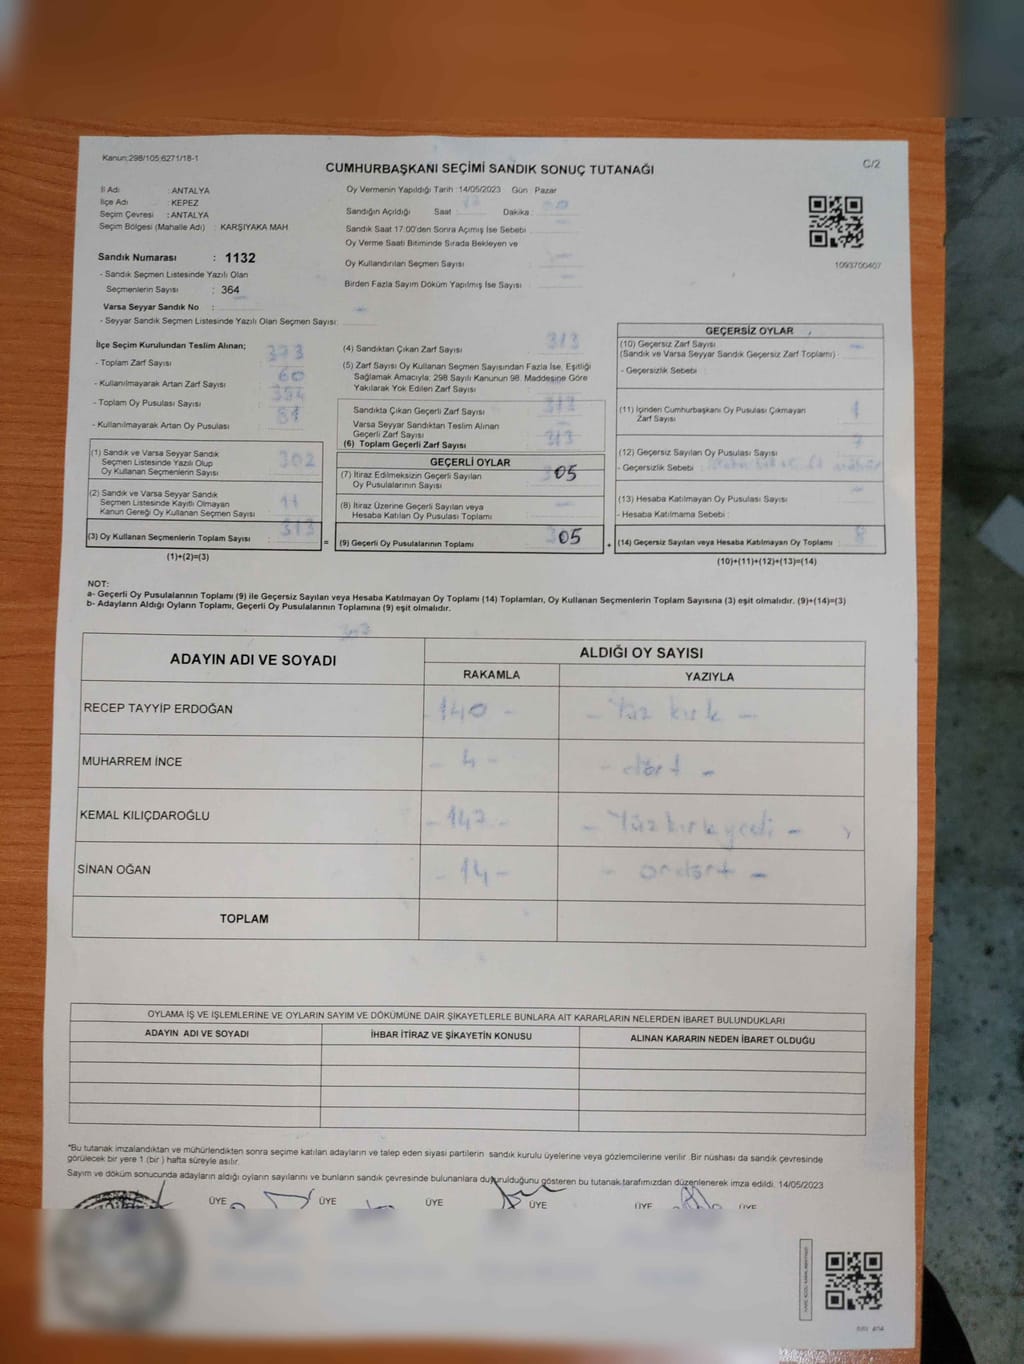 Kanun:298/105;6271/18-1
C/2
CUMHURBAŞKANI SEÇİMİ SANDIK SONUÇ TUTANAĞI
İl Adı : ANTALYA
İlçe Adı : KEPEZ
Seçim Çevresi : ANTALYA
Seçim Bölgesi (Mahalle Adı) : KARŞIYAKA MAH
Sandık Numarası : 1132
- Sandık Seçmen Listesinde Yazılı Olan
Seçmenlerin Sayısı : 364
Varsa Seyyar Sandık No :
- Seyyar Sandık Seçmen Listesinde Yazılı Olan Seçmen Sayısı:
Oy Vermenin Yapıldığı Tarih :14/05/2023 Gün : Pazar
Sandığın Açıldığı Saat : Dakika :
Sandık Saat 17:00'den Sonra Açımış İse Sebebi :
Oy Verme Saati Bitiminde Sırada Bekleyen ve
Oy Kullandırılan Seçmen Sayısı :
Birden Fazla Sayım Döküm Yapılmış İse Sayısı :
1093700407
İlçe Seçim Kurulundan Teslim Alınan;
- Toplam Zarf Sayısı : 373
- Kullanılmayarak Artan Zarf Sayısı : 60
- Toplam Oy Pusulası Sayısı : 394
- Kullanılmayarak Artan Oy Pusulası : 81
(1) Sandık ve Varsa Seyyar Sandık
Seçmen Listesinde Yazılı Olup
Oy Kullanan Seçmenlerin Sayısı : 302
(2) Sandık ve Varsa Seyyar Sandık
Seçmen Listesinde Kayıtlı Olmayan
Kanun Gereği Oy Kullanan Seçmen Sayısı : 11
(3) Oy Kullanan Seçmenlerin Toplam Sayısı : 313
(1)+(2)=(3)
=
(4) Sandıktan Çıkan Zarf Sayısı : 313
(5) Zarf Sayısı Oy Kullanan Seçmen Sayısından Fazla İse, Eşitliği
Sağlamak Amacıyla; 298 Sayılı Kanunun 98. Maddesine Göre
Yakılarak Yok Edilen Zarf Sayısı :
Sandıkta Çıkan Geçerli Zarf Sayısı : 313
Varsa Seyyar Sandıktan Teslim Alınan
Geçerli Zarf Sayısı :
(6) Toplam Geçerli Zarf Sayısı : 313
GEÇERLİ OYLAR
(7) İtiraz Edilmeksizin Geçerli Sayılan
Oy Pusulalarının Sayısı : 305
(8) İtiraz Üzerine Geçerli Sayılan veya
Hesaba Katılan Oy Pusulası Toplamı :
(9) Geçerli Oy Pusulalarının Toplamı : 305
+
GEÇERSİZ OYLAR
(10) Geçersiz Zarf Sayısı
(Sandık ve Varsa Seyyar Sandık Geçersiz Zarf Toplamı) :
- Geçersizlik Sebebi :
(11) İçinden Cumhurbaşkanı Oy Pusulası Çıkmayan
Zarf Sayısı : 1
(12) Geçersiz Sayılan Oy Pusulası Sayısı : 7
- Geçersizlik Sebebi :
(13) Hesaba Katılmayan Oy Pusulası Sayısı :
- Hesaba Katılmama Sebebi :
(14) Geçersiz Sayılan veya Hesaba Katılmayan Oy Toplamı : 8
(10)+(11)+(12)+(13)=(14)
NOT:
a- Geçerli Oy Pusulalarının Toplamı (9) ile Geçersiz Sayılan veya Hesaba Katılmayan Oy Toplamı (14) Toplamları, Oy Kullanan Seçmenlerin Toplam Sayısına (3) eşit olmalıdır. (9)+(14)=(3)
b- Adayların Aldığı Oyların Toplamı, Geçerli Oy Pusulalarının Toplamına (9) eşit olmalıdır.
ADAYIN ADI VE SOYADI
ALDIĞI OY SAYISI
RAKAMLA YAZIYLA
RECEP TAYYİP ERDOĞAN - 140 - - Yüz kırk -
MUHARREM İNCE - 4 - - dört -
KEMAL KILIÇDAROĞLU - 147 - - Yüz kırk yedi -
SİNAN OĞAN - 14 - - ondört -
TOPLAM
OYLAMA İŞ VE İŞLEMLERİNE VE OYLARIN SAYIM VE DÖKÜMÜNE DAİR ŞİKAYETLERLE BUNLARA AİT KARARLARIN NELERDEN İBARET BULUNDUKLARI
ADAYIN ADI VE SOYADI İHBAR İTİRAZ VE ŞİKAYETİN KONUSU ALINAN KARARIN NEDEN İBARET OLDUĞU
*Bu tutanak imzalandıktan ve mühürlendikten sonra seçime katılan adayların ve talep eden siyasi partilerin sandık kurulu üyelerine veya gözlemcilerine verilir .Bir nüshası da sandık çevresinde
görülecek bir yere 1 (bir ) hafta süreyle asılır.
Sayım ve döküm sonucunda adayların aldığı oyların sayılarını ve bunların sandık çevresinde bulunanlara duyurulduğunu gösteren bu tutanak tarafımızdan düzenlenerek imza edildi. 14/05/2023
ÜYE ÜYE ÜYE ÜYE ÜYE ÜYE